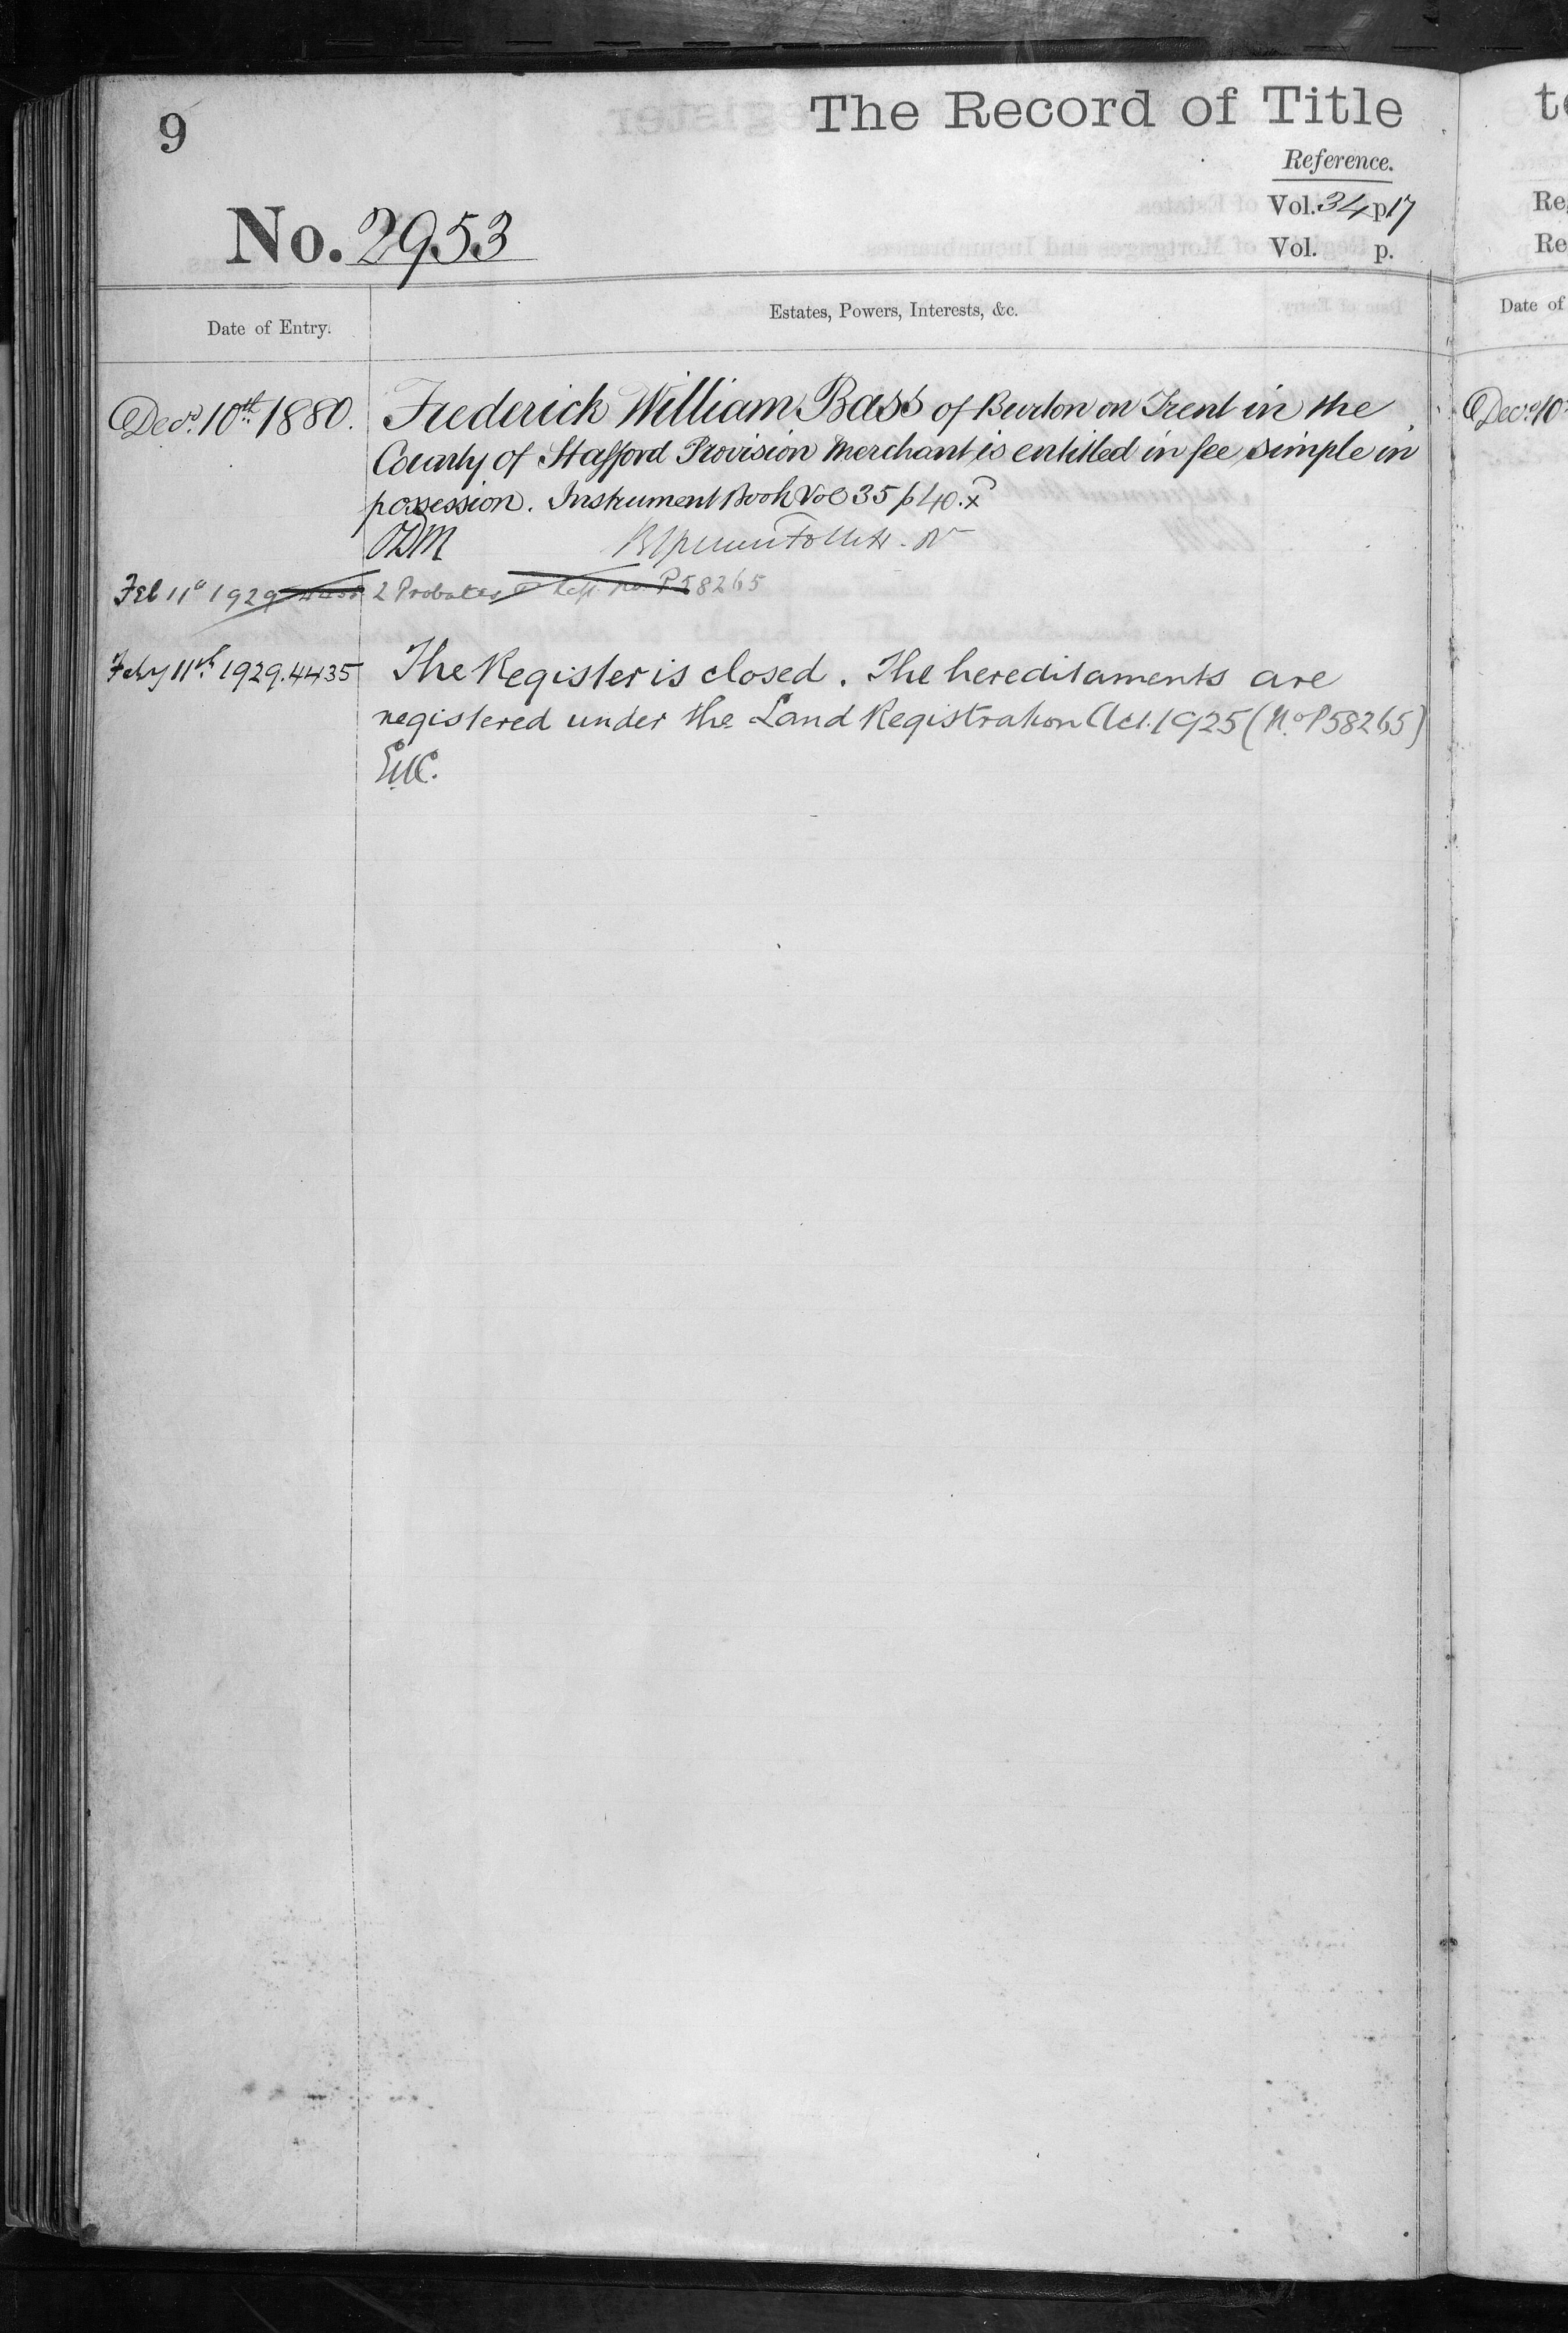 9
The Record of Title
Reference.
No. 2953
Vol. 34 p 17
Vol. p.
Date of Entry.
Estates, Powers, Interests, &c.
Decr. 10th 1880. Frederick William Bass of Burton on Trent in the
County of Stafford Provision Merchant is entitled in fee simple in
possession. Instrument Book Vol 35 p 40.
ODM
Feb 11 1929 2 Probates P58265
Feby 11th 1929. 4435 The Register is closed. The hereditaments are
registered under the Land Registration Act. 1925 (No. P58265)
Re
Date of
Decr. 10